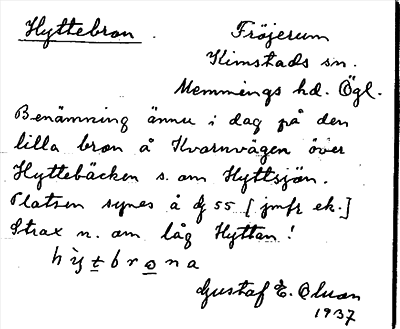 Hyttebron.
Fröjerum
Kimstads sn.
Memmings hd. Ögl.
Benämning ännu i dag på den
lilla bron å Kvarnvägen över
Hyttebäcken s. om Hyttsjön.
Platsen synes å dj 55 [jmfr ek.]
Strax n. om låg Hyttan!
hy̆t̲bro̲na
Gustaf E. Olson
1937